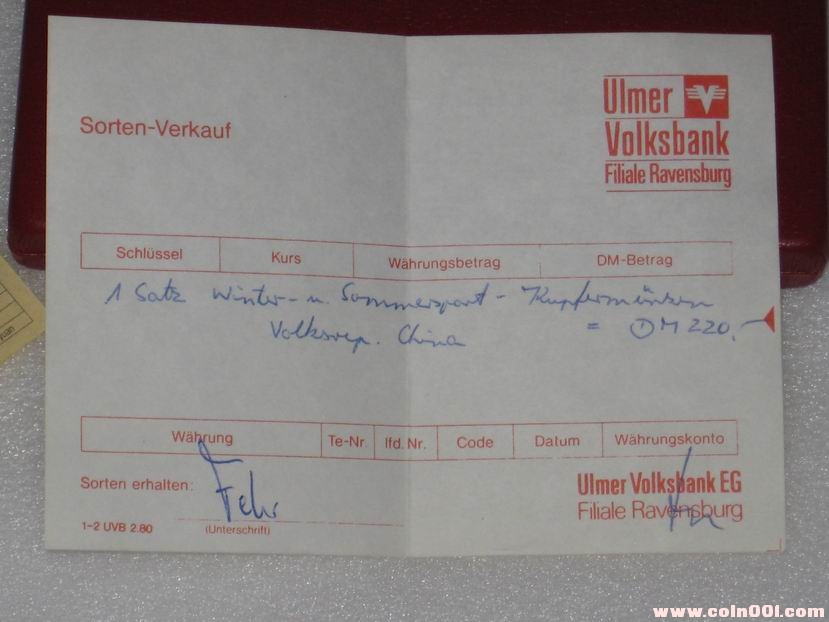 Ulmer
Volksbank
Filiale Ravensburg
Sorten-Verkauf
Schlüssel Kurs Währungsbetrag DM-Betrag
1 Satz Winter- u. Sommersport - Kupfermünzen
Volksrep. China = DM 220,-
Währung Te-Nr. lfd. Nr. Code Datum Währungskonto
Sorten erhalten: Fehr
(Unterschrift)
Ulmer Volksbank EG
Filiale Ravensburg
1-2 UVB 2.80
www.coln001.com